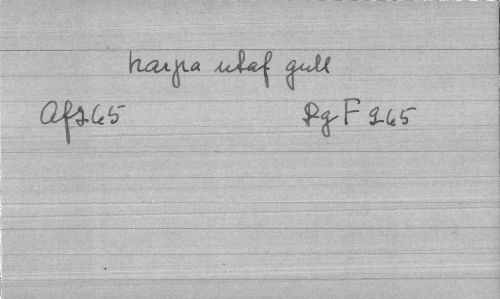 harpa utaf gull
Af265 RgF 265